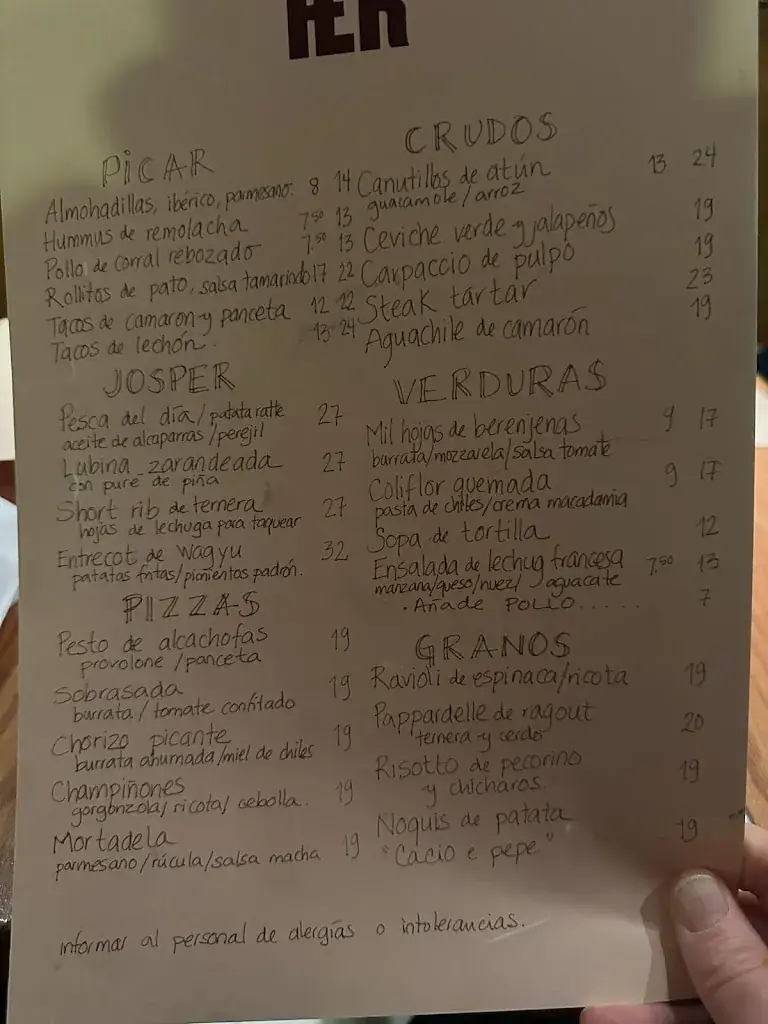 FER
PICAR
Almohadillas, ibérico, parmesano. 8 14
Hummus de remolacha 7.50 13
Pollo de corral rebozado 7.50 13
Rollitos de pato, salsa tamarindo 17 22
Tacos de camaron y panceta 12 22
Tacos de lechón. 13 24
JOSPER
Pesca del día/patata ratte 27
aceite de alcaparras/perejil
Lubina zarandeada 27
con pure de piña
Short rib de ternera 27
hojas de lechuga para taquear
Entrecot de Wagyu 32
patatas fritas/pimientos padrón.
PIZZAS
Pesto de alcachofas 19
provolone/panceta
Sobrasada 19
burrata/tomate confitado
Chorizo picante 19
burrata ahumada/miel de chiles
Champiñones 19
gorgonzola/ricota/cebolla.
Mortadela 19
parmesano/rúcula/salsa macha
CRUDOS
Canutillos de atún 13 24
guacamole/arroz
Ceviche verde y jalapeños 19
Carpaccio de pulpo 19
Steak tártar 23
Aguachile de camarón 19
VERDURAS
Mil hojas de berenjenas 9 17
burrata/mozzarela/salsa tomate
Coliflor quemada 9 17
pasta de chiles/crema macadamia
Sopa de tortilla 12
Ensalada de lechug francesa 7.50 13
manzana/queso/nuez/aguacate
· Añade POLLO...... 7
GRANOS
Ravioli de espinaca/ricota 19
Pappardelle de ragout 20
ternera y cerdo
Risotto de pecorino 19
y chicharos.
Noquis de patata 19
"Cacio e pepe"
informar al personal de alergías o intolerancias.